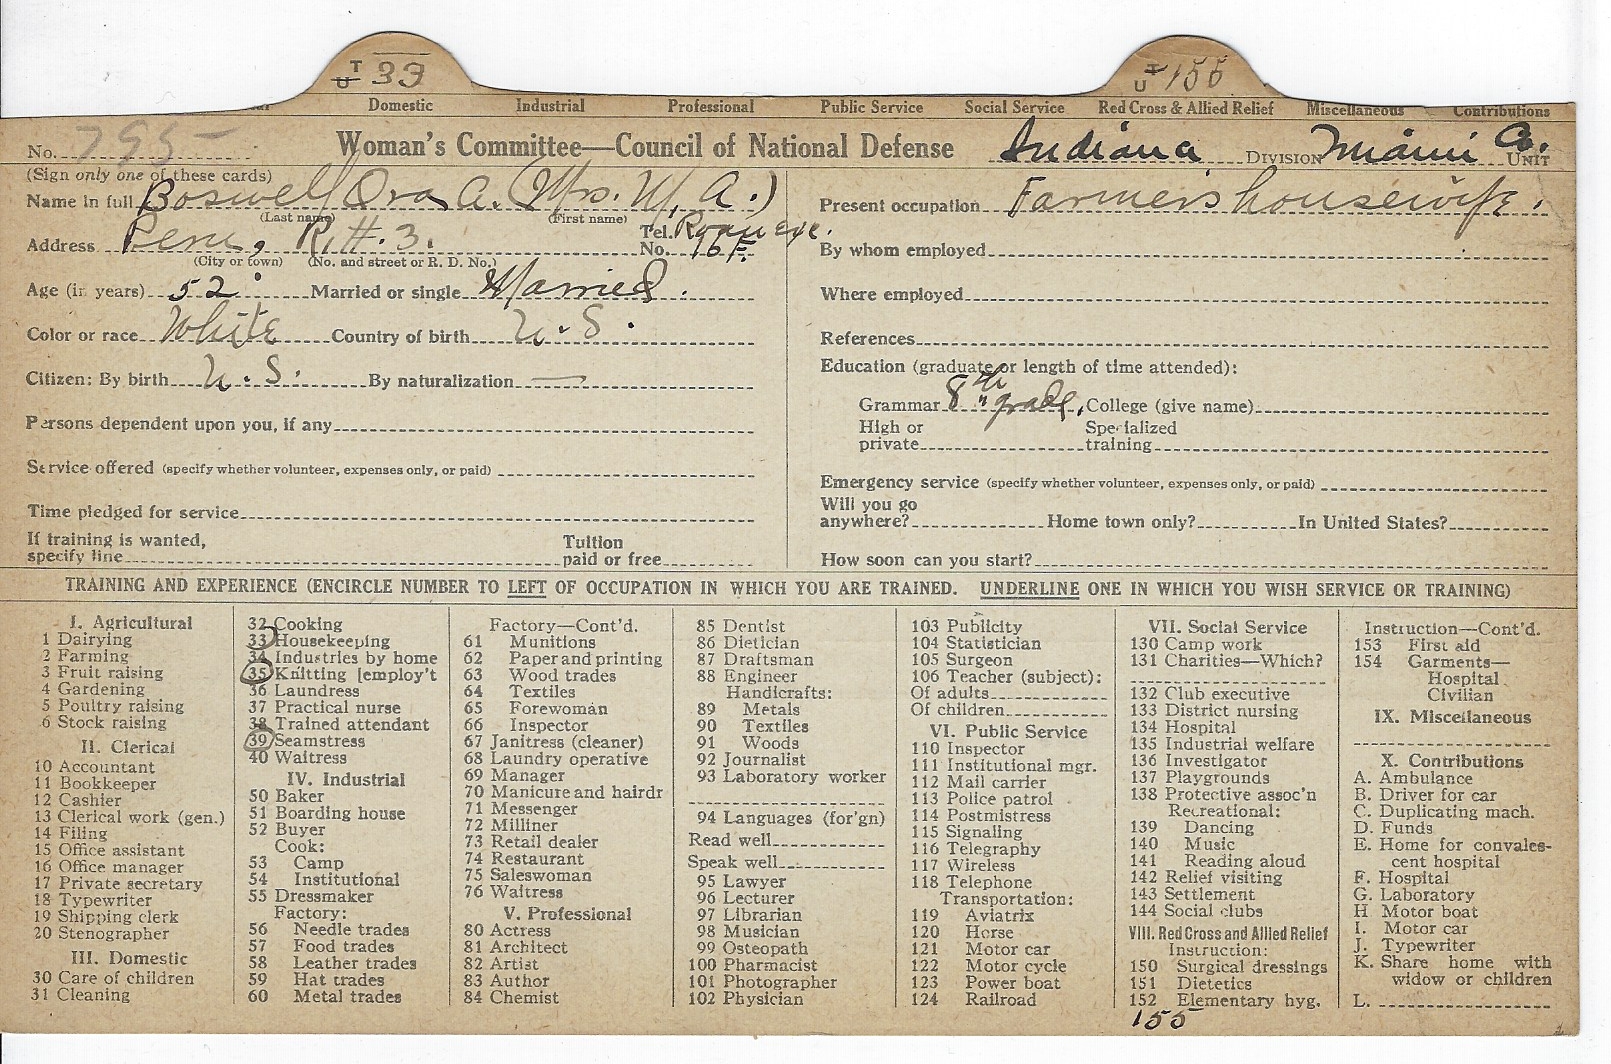 T U 33
T U 155
Domestic Industrial Professional Public Service Social Service Red Cross & Allied Relief Miscellaneous Contributions
No. 795
Woman's Committee—Council of National Defense Indiana DIVISION Miami Co. UNIT
(Sign only one of these cards)
Name in full Boswell Ora A. (Mrs. M. A.)
(Last name) (First name)
Address Peru, R.H. 3. Tel. No. Roann exc. 16 F.
(City or town) (No. and street or R. D. No.)
Age (in years) 52 Married or single Married.
Color or race White Country of birth U.S.
Citizen: By birth U.S. By naturalization —
Persons dependent upon you, if any
Service offered (specify whether volunteer, expenses only, or paid)
Time pledged for service
If training is wanted,
specify line Tuition paid or free
Present occupation Farmer's housewife.
By whom employed
Where employed
References
Education (graduate or length of time attended):
Grammar 8th grade, College (give name)
High or private Specialized training
Emergency service (specify whether volunteer, expenses only, or paid)
Will you go anywhere? Home town only? In United States?
How soon can you start?
TRAINING AND EXPERIENCE (ENCIRCLE NUMBER TO LEFT OF OCCUPATION IN WHICH YOU ARE TRAINED. UNDERLINE ONE IN WHICH YOU WISH SERVICE OR TRAINING)
I. Agricultural
1 Dairying
2 Farming
3 Fruit raising
4 Gardening
5 Poultry raising
6 Stock raising
II. Clerical
10 Accountant
11 Bookkeeper
12 Cashier
13 Clerical work (gen.)
14 Filing
15 Office assistant
16 Office manager
17 Private secretary
18 Typewriter
19 Shipping clerk
20 Stenographer
III. Domestic
30 Care of children
31 Cleaning
32 Cooking
33 Housekeeping
34 Industries by home
35 Knitting [employ't
36 Laundress
37 Practical nurse
38 Trained attendant
39 Seamstress
40 Waitress
IV. Industrial
50 Baker
51 Boarding house
52 Buyer
Cook:
53 Camp
54 Institutional
55 Dressmaker
Factory:
56 Needle trades
57 Food trades
58 Leather trades
59 Hat trades
60 Metal trades
Factory—Cont'd.
61 Munitions
62 Paper and printing
63 Wood trades
64 Textiles
65 Forewoman
66 Inspector
67 Janitress (cleaner)
68 Laundry operative
69 Manager
70 Manicure and hairdr
71 Messenger
72 Milliner
73 Retail dealer
74 Restaurant
75 Saleswoman
76 Waitress
V. Professional
80 Actress
81 Architect
82 Artist
83 Author
84 Chemist
85 Dentist
86 Dietician
87 Draftsman
88 Engineer
Handicrafts:
89 Metals
90 Textiles
91 Woods
92 Journalist
93 Laboratory worker
94 Languages (for'gn)
Read well
Speak well
95 Lawyer
96 Lecturer
97 Librarian
98 Musician
99 Osteopath
100 Pharmacist
101 Photographer
102 Physician
103 Publicity
104 Statistician
105 Surgeon
106 Teacher (subject):
Of adults
Of children
VI. Public Service
110 Inspector
111 Institutional mgr.
112 Mail carrier
113 Police patrol
114 Postmistress
115 Signaling
116 Telegraphy
117 Wireless
118 Telephone
Transportation:
119 Aviatrix
120 Horse
121 Motor car
122 Motor cycle
123 Power boat
124 Railroad
VII. Social Service
130 Camp work
131 Charities—Which?
132 Club executive
133 District nursing
134 Hospital
135 Industrial welfare
136 Investigator
137 Playgrounds
138 Protective assoc'n
Recreational:
139 Dancing
140 Music
141 Reading aloud
142 Relief visiting
143 Settlement
144 Social clubs
VIII. Red Cross and Allied Relief
Instruction:
150 Surgical dressings
151 Dietetics
152 Elementary hyg.
155
Instruction—Cont'd.
153 First aid
154 Garments—
Hospital
Civilian
IX. Miscellaneous
X. Contributions
A. Ambulance
B. Driver for car
C. Duplicating mach.
D. Funds
E. Home for convales-
cent hospital
F. Hospital
G. Laboratory
H Motor boat
I. Motor car
J. Typewriter
K. Share home with
widow or children
L.